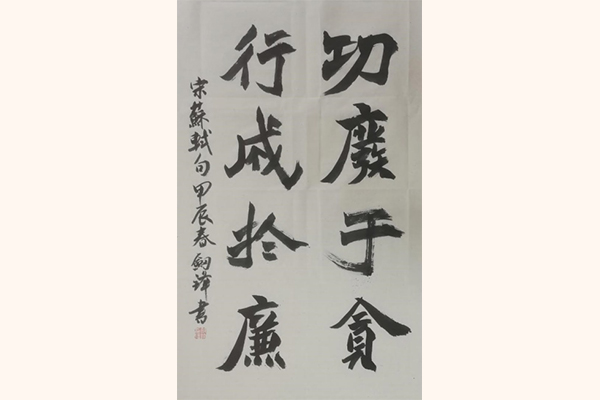 功廢于貪
行成於廉
宋蘇軾句甲辰春釼鋒書